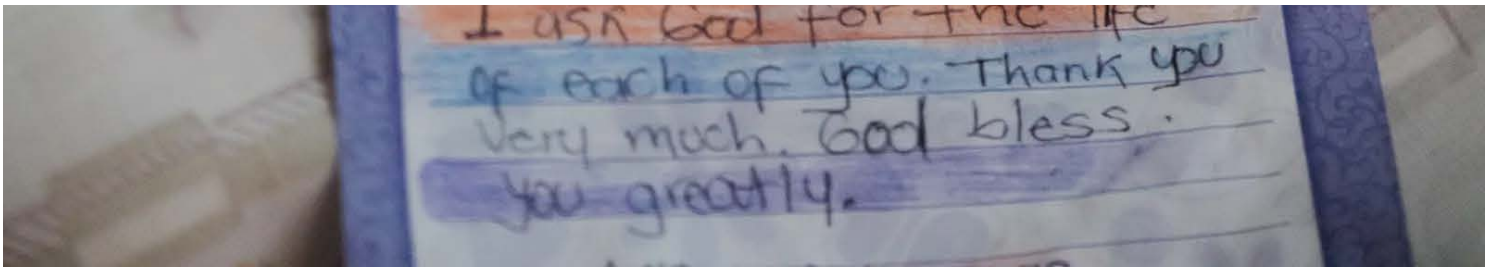 I ask God for the life
of each of you. Thank you
very much. God bless.
you greatly.